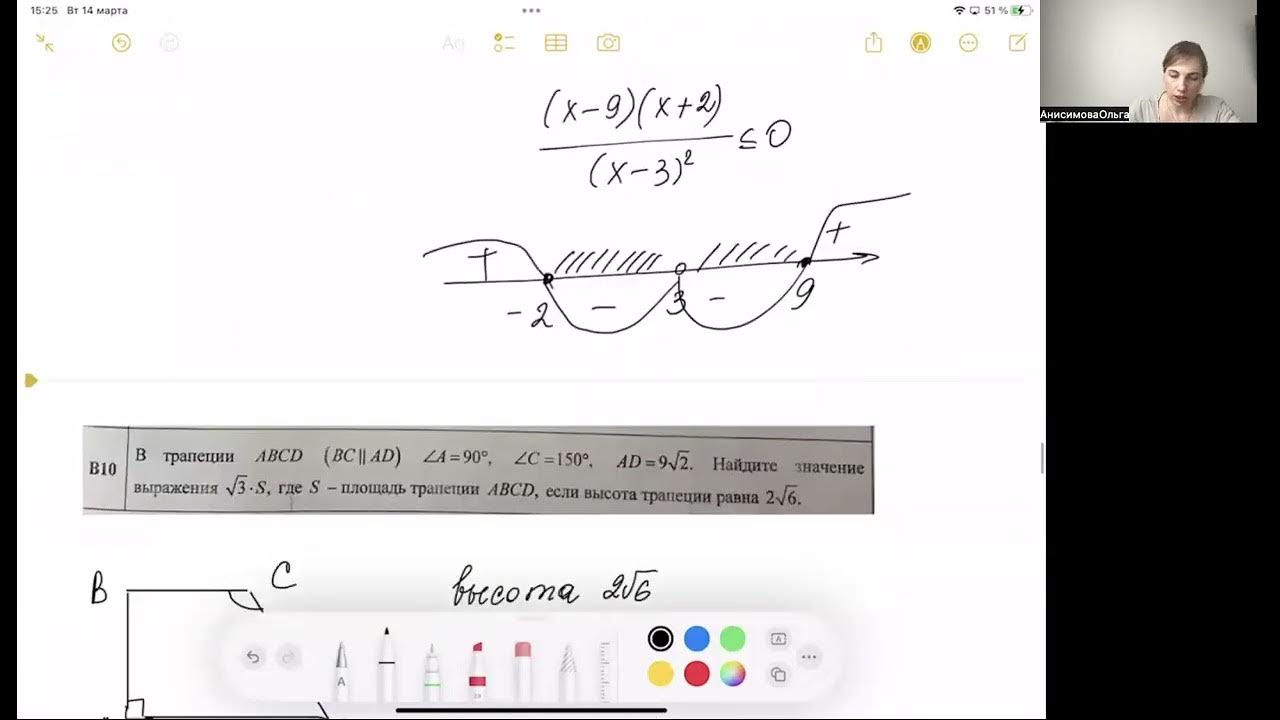 15:25 Вт 14 марта
51 %
Aa
АнисимоваОльга
(x-9)(x+2)
(x-3)² ≤ 0
+ +
-2 - 3 - 9
В10 В трапеции ABCD (BC || AD) ∠A = 90°, ∠C = 150°, AD = 9√2. Найдите значение
выражения √3·S, где S – площадь трапеции ABCD, если высота трапеции равна 2√6.
B C высота 2√6
A A